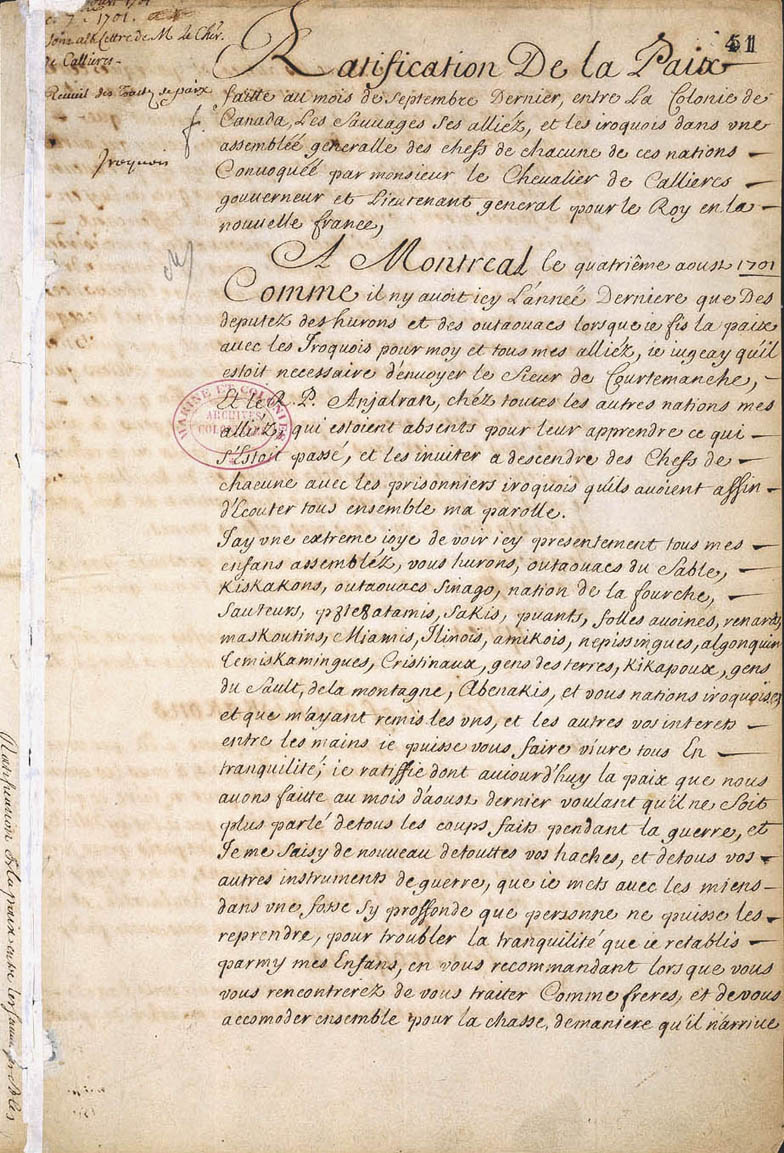 7. 1701.
Joint a la Lettre de M. le Chev.
de Callieres -
Recueil des Traitez de paix
Iroquois
51
Ratification De la Paix
faitte au mois de septembre Dernier, entre La Colonie de
Canada, Les Sauvages ses alliéz, et les iroquois dans vne
assemblée generalle des chefs de chacune de ces nations
Convoquéé par monsieur le Chevalier de Callieres
gouverneur et Lieutenant general pour le Roy en la
nouvelle france,
A Montreal le quatriême aoust 1701
Comme il ny avoit icy L'année Derniere que Des
deputez des hurons et des outaouacs lorsque ie fis la paix
avec les Iroquois pour moy et tous mes alliéz, ie iugeay qu'il
estoit necessaire d'envoyer le Sieur de Courtemanche,
Et le R. P. Anjalran, chéz toutes les autres nations mes
alliéz, qui estoient absents pour leur apprendre ce qui
s'Estoit passé, et les inviter a descendre des Chefs de
chacune avec les prisonniers iroquois qu'ils avoient affin
d'Ecouter tous ensemble ma parolle.
J'ay vne extreme ioye de voir icy presentement tous mes
enfans assembléz, vous hurons, outaouacs du Sable,
Kiskakons, outaouacs Sinago, nation de la fourche,
Sauteurs, p8te8atamis, Sakis, puants, folles avoines, renards,
maskoutins, Miamis, Ilinois, amikois, nepissingues, algonquins
Temiskamingues, Cristinaux, gens des terres, Kikapoux, gens
du Sault, de la montagne, Abenakis, et vous nations iroquoises
et que m'ayant remis les vns, et les autres vos interets
entre les mains ie puisse vous faire vivre tous En
tranquilité; ie ratiffie dont aujourd'huy la paix que nous
avons faitte au mois d'aoust dernier voulant qu'il ne soit
plus parlé de tous les coups faits pendant la guerre, et
Je me saisy de nouveau de touttes vos haches, et de tous vos
autres instruments de guerre, que ie mets avec les miens
dans vne fosse sy proffonde que personne ne puisse les
reprendre, pour troubler la tranquilité que ie retablis
parmy mes Enfans, en vous recommandant lorsque vous
vous rencontrerez de vous traiter Comme freres, et de vous
accomoder ensemble pour la chasse, de maniere qu'il n'arrive
MARINE ET COLONIES
ARCHIVES
Ratification de la paix entre les